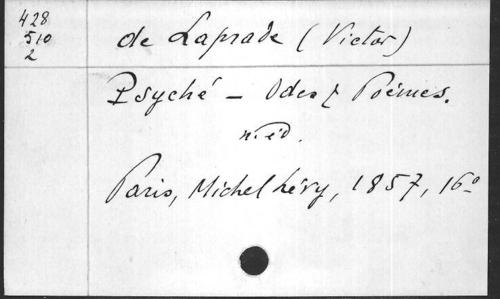 428
510
2
de Laprade (Victor)
Psyché – Odes & Poèmes.
n. éd.
Paris, Michel Lévy, 1857, 16º